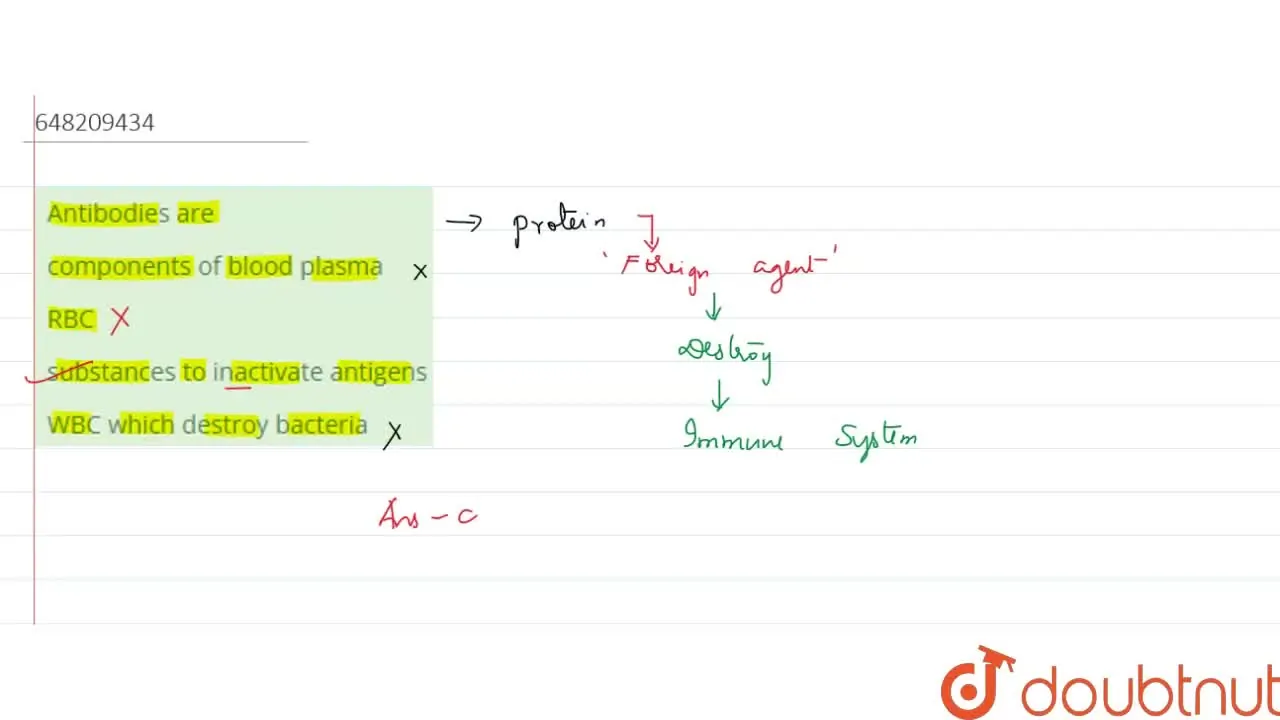 648209434
Antibodies are
components of blood plasma X
RBC X
substances to inactivate antigens
WBC which destroy bacteria X
→ protein
'Foreign agent'
Destroy
Immune System
Ans - c
doubtnut